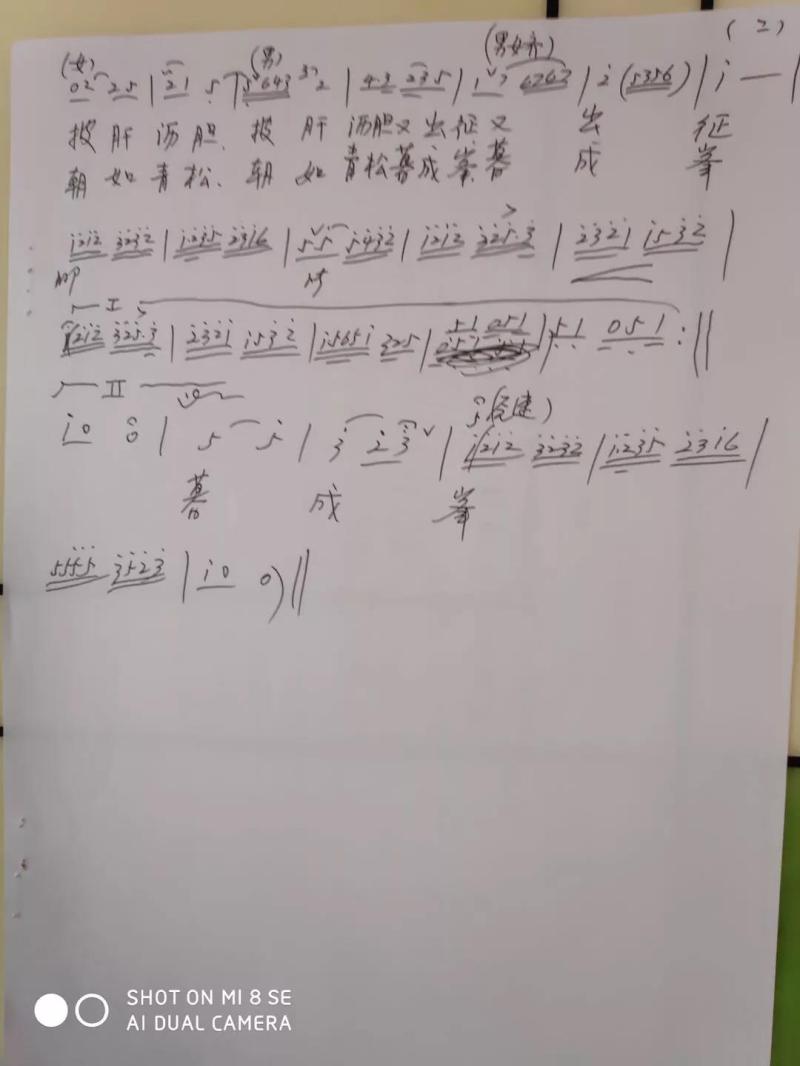 (2)
(女) (男) (男女齐)
02 25 | 21 5 | 5643 32 | 43 235 | 1 6262 | 2 (5356) | i — |
披肝沥胆、披肝沥胆又出征又出征
朝如青松、朝如青松暮成峯、暮成峯
1212 3232 | 1235 2316 | 55 5432 | 1212 225·3 | 2321 1532 |
I
1212 325·3 | 2321 1532 | 15651 325 | 51 051 | 51 051 :||
II
i0 0 | 5 5 | 3 23 | 1212 3232 | 1235 2316 |
暮成峯
5555 3523 | i0 0) ||
SHOT ON MI 8 SE
AI DUAL CAMERA